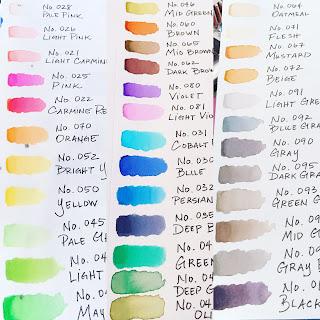 No. 028
PALE PINK
No. 026
LIGHT PINK
No. 021
LIGHT CARMINE
No. 025
PINK
No. 022
CARMINE RE
No. 070
ORANGE
No. 052
BRIGHT Y
No. 050
YELLOW
No. 045
PALE G
No. 04
LIGHT
No. 04
MAY
No. 046
MID GREEN
No. 060
BROWN
No. 065
MID BROWN
No. 062
DARK BROW
No. 080
VIOLET
No. 081
LIGHT VIO
No. 031
COBALT
No. 030
BLUE
No. 032
PERSIAN
No. 035
DEEP B
No. 04
GREEN
No. 04
DEEP G
No. 04
OLI
No. 064
OATMEAL
No. 071
FLESH
No. 067
MUSTARD
No. 072
BEIGE
No. 091
LIGHT GRE
No. 092
BLUE GRA
No. 090
GRAY
No. 095
DARK GRA
No. 093
GREEN G
No. 09
MID G
No. 09
GRAY B
No. 0
BLACK